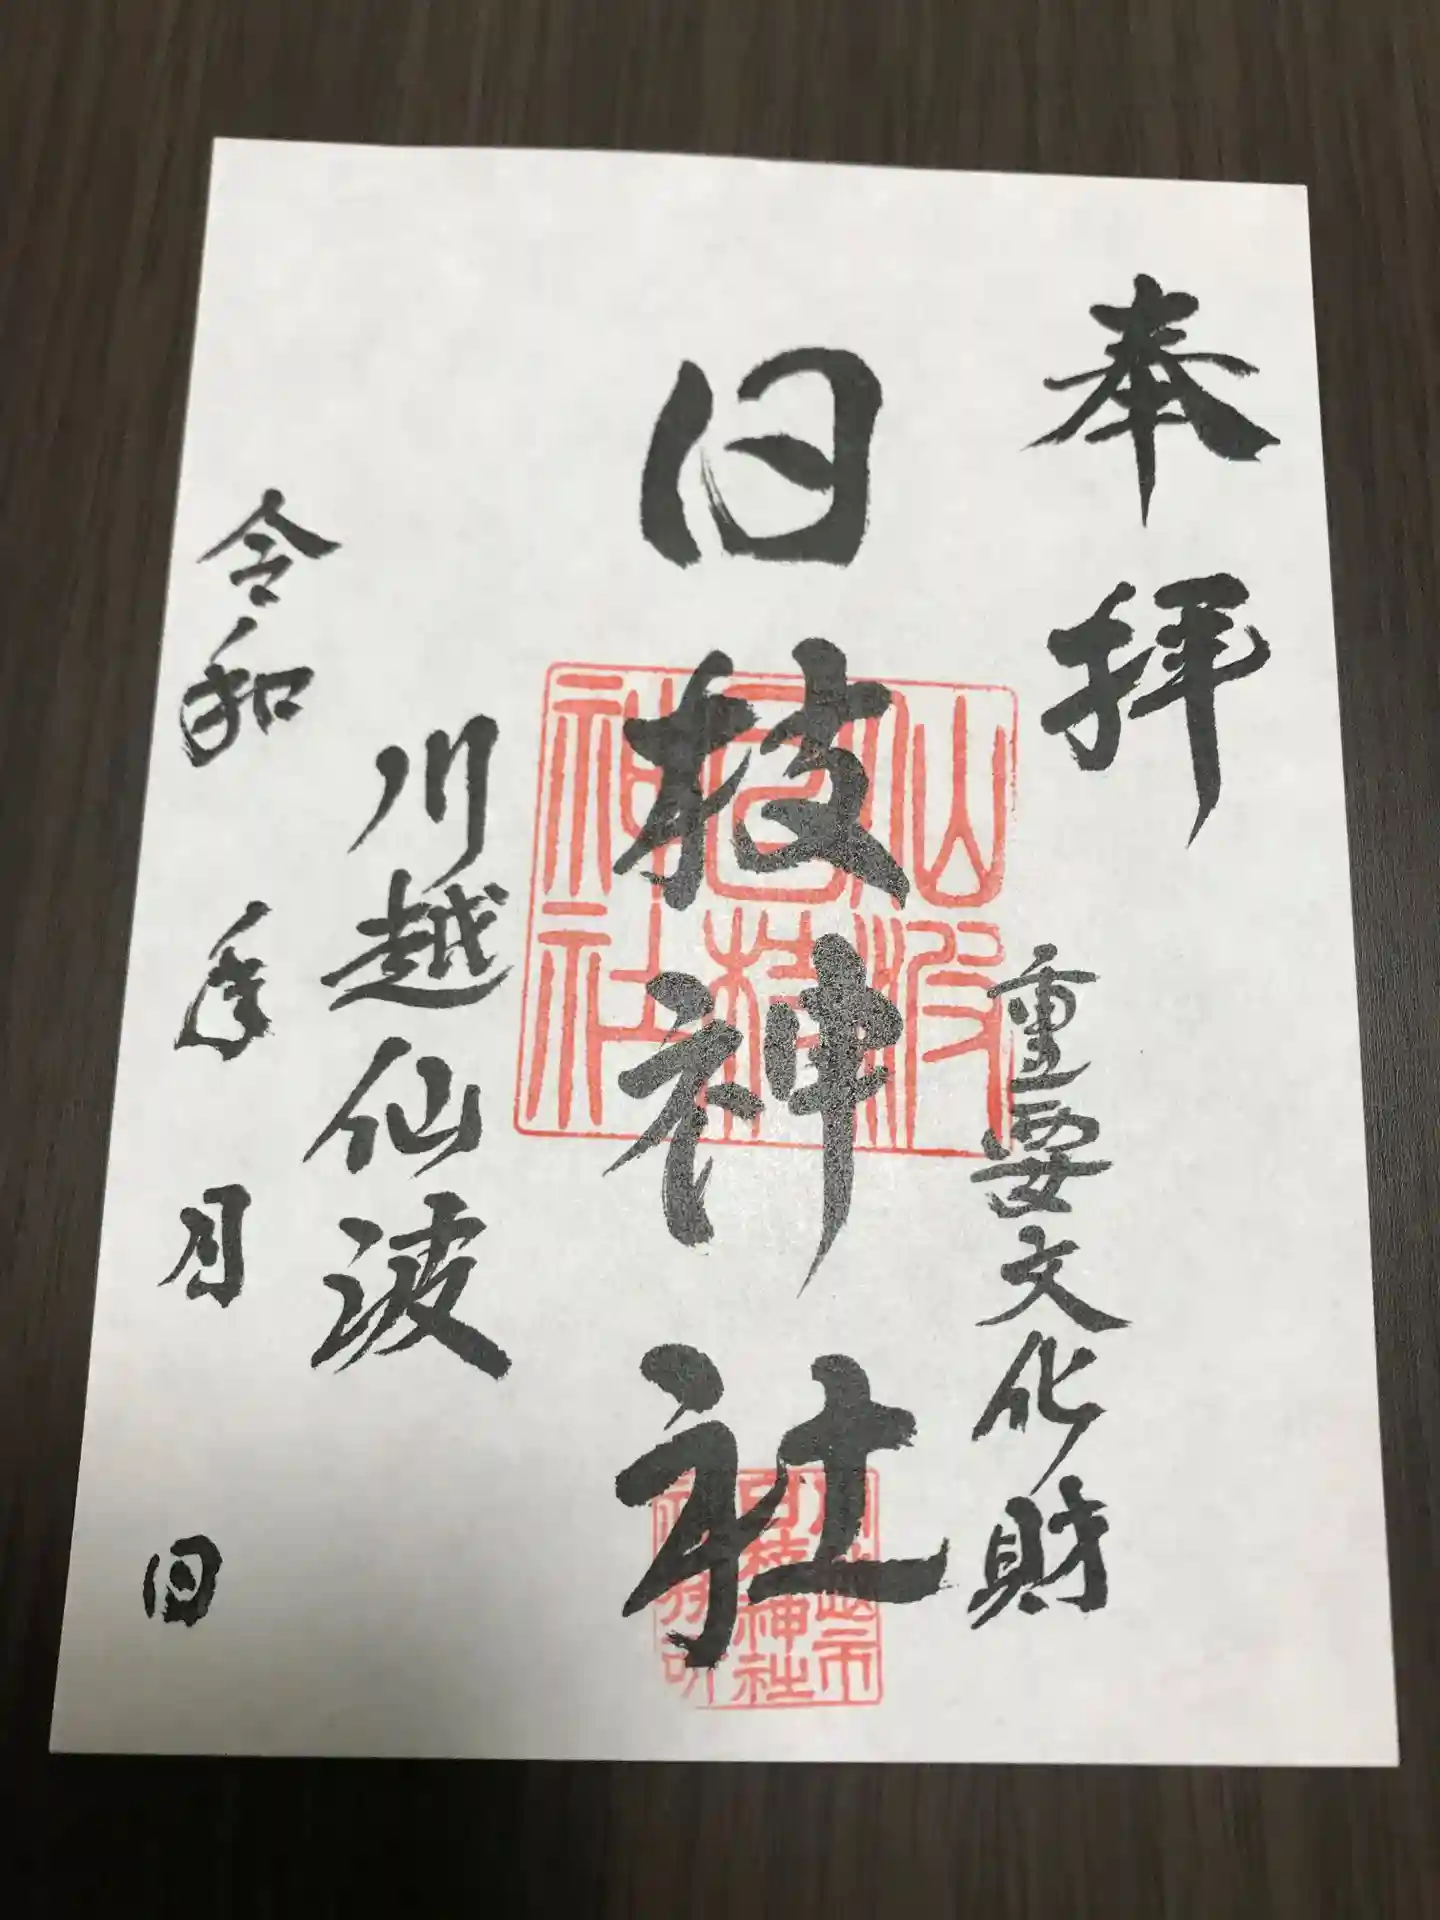 奉拝
重要文化財
日枝神社
仙波
日枝
神社
川越市
日枝神社
川越仙波
令和 年 月 日